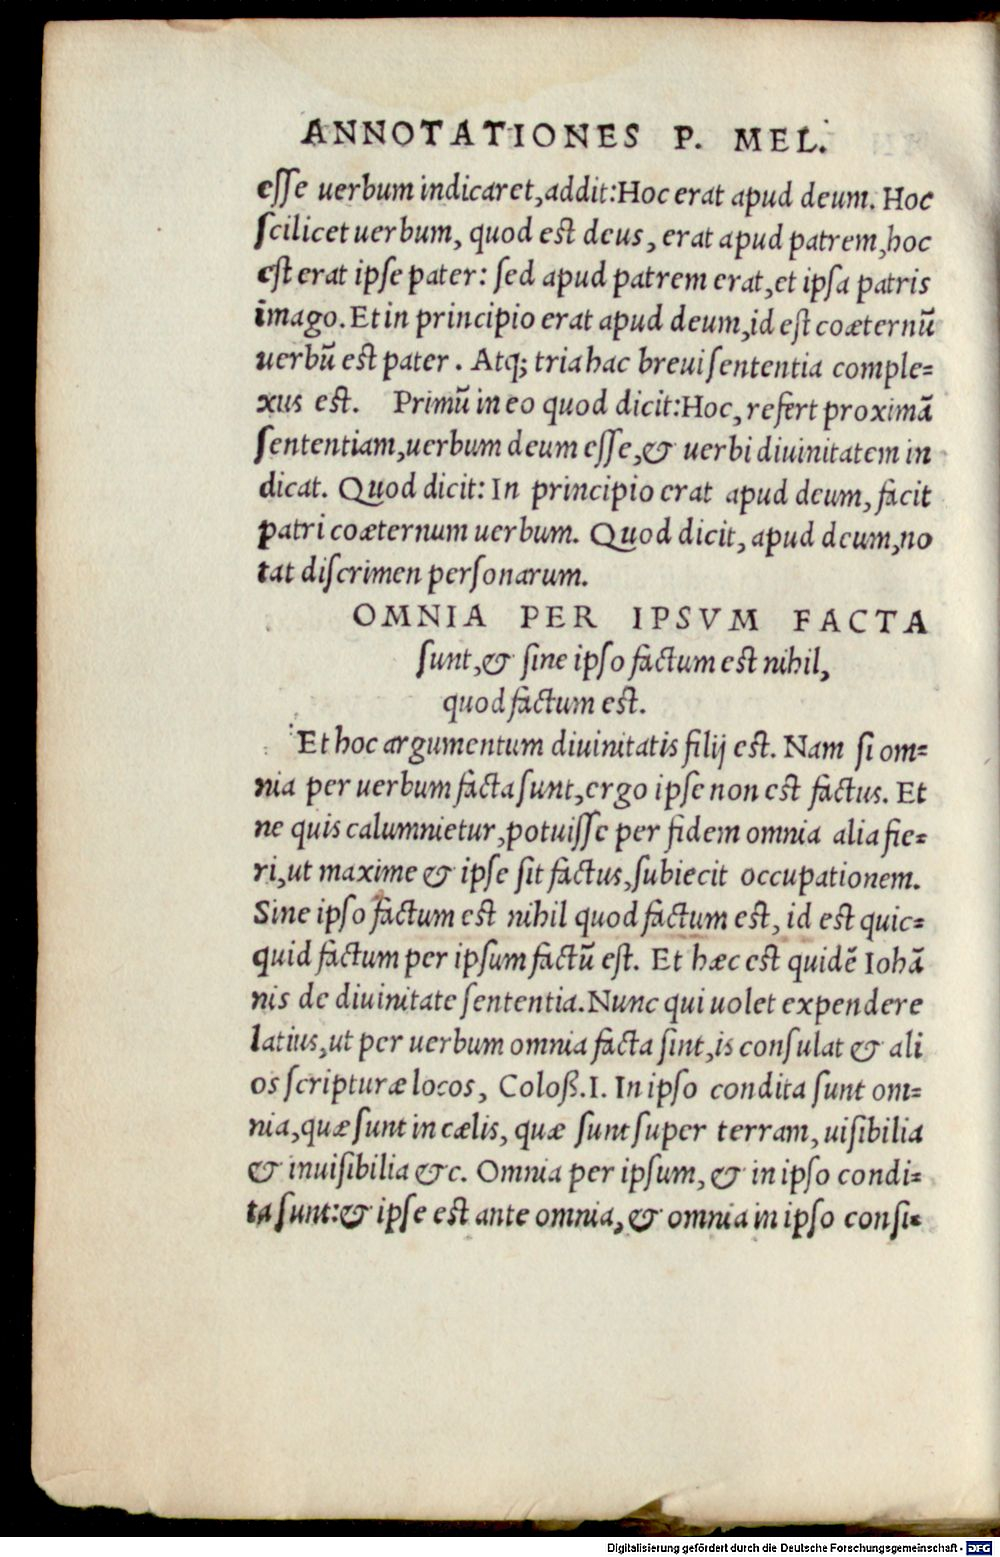 ANNOTATIONES P. MEL.
eſſe uerbum indicaret, addit: Hoc erat apud deum. Hoc
ſcilicet uerbum, quod est deus, erat apud patrem, hoc
eſt erat ipſe pater: ſed apud patrem erat, et ipſa patris
imago. Et in principio erat apud deum, id eſt coæternū
uerbū est pater. Atq; tria hac breui ſententia comple=
xus est. Primū in eo quod dicit: Hoc, refert proximā
ſententiam, uerbum deum eſſe, & uerbi diuinitatem in
dicat. Quod dicit: In principio erat apud deum, facit
patri coæternum uerbum. Quod dicit, apud deum, no
tat diſcrimen perſonarum.
OMNIA PER IPSVM FACTA
ſunt, & ſine ipſo factum est nihil,
quod factum est.
Et hoc argumentum diuinitatis filij est. Nam ſi om=
nia per uerbum facta ſunt, ergo ipſe non est factus. Et
ne quis calumnietur, potuiſſe per fidem omnia alia fie=
ri, ut maxime & ipſe ſit factus, ſubiecit occupationem.
Sine ipſo factum est nihil quod factum est, id est quic=
quid factum per ipſum factū eſt. Et hæc est quidē Iohā
nis de diuinitate ſententia. Nunc qui uolet expendere
latius, ut per uerbum omnia facta ſint, is conſulat & ali
os ſcripturæ locos, Coloß. I. In ipſo condita ſunt om=
nia, quæ ſunt in cælis, quæ ſunt ſuper terram, uiſibilia
& inuiſibilia &c. Omnia per ipſum, & in ipſo condi=
ta ſunt: & ipſe est ante omnia, & omnia in ipſo conſi=
Digitalisierung gefördert durch die Deutsche Forschungsgemeinschaft - DFG